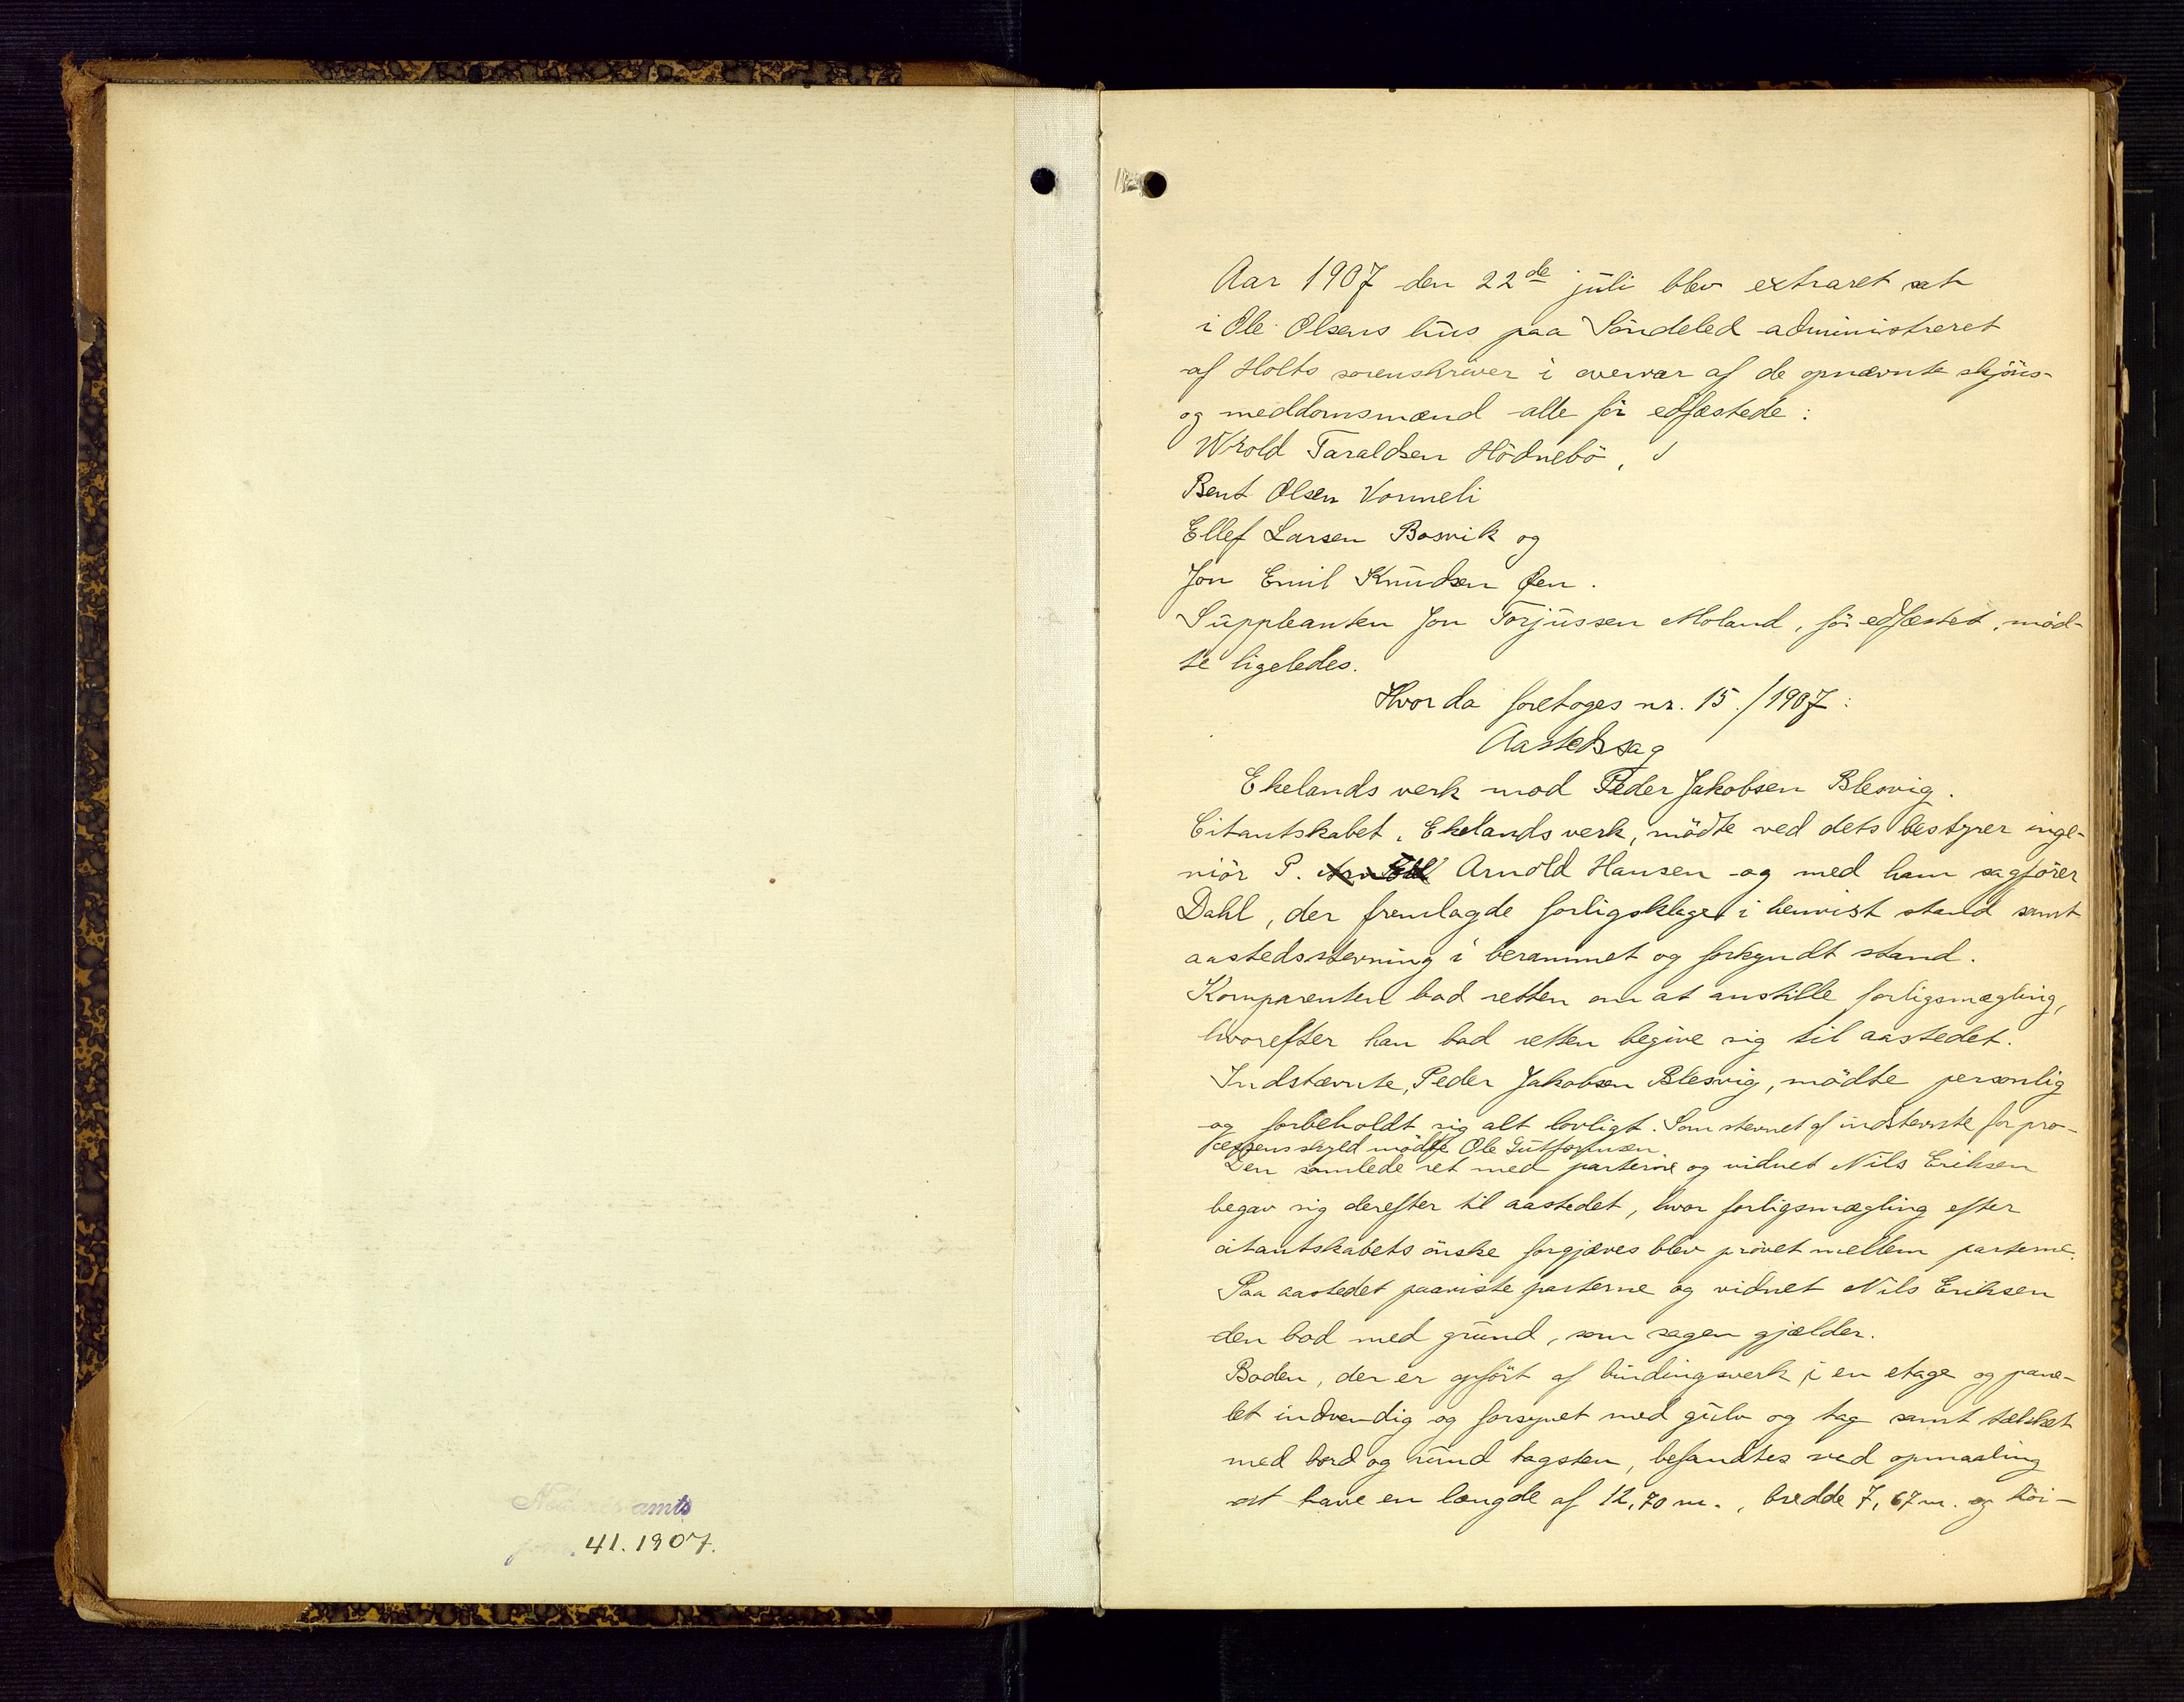 Aar 1907 den 22de juli blev extraret sat
i Ole Olsens hus paa Söndeled administreret
af Holts sorenskriver i overvær af de opnævnte skjöns-
og meddomsmænd alle för edfæstede:
Wrold Taraldsen Hödnebö,
Bent Olsen Vormeli
Ellef Larsen Bosvik og
Jon Emil Knudsen Øen.
Suppleanten Jon Torjussen Moland, för edfæstet, möd-
te ligeledes.
Hvor da foretoges nr. 15./1907:
Aastedssag
Ekelands verk mod Peder Jakobsen Blesvig.
Citantskabet, Ekelands verk, mödte ved dets bestyrer inge-
niör P. Arnold Hansen og med ham sagförer
Dahl, der fremlagde forligsklage i henvist stand samt
aastedsstevning i berammet og forkyndt stand.
Komparenten bad retten om at anstille forligsmægling,
hvorefter han bad retten begive sig til aastedet.
Indstævnte, Peder Jakobsen Blesvig, mödte personlig
og forbeholdt sig alt lovligt. Som stevnet af indstevnte for pro-
cessens skyld mödte Ole Guttormsen.
Den samlede ret med parterne og vidnet Nils Eriksen
begav sig derefter til aastedet, hvor forligsmægling efter
citantskabets önske forgjæves blev prövet mellem parterne.
Paa aastedet paaviste parterne og vidnet Nils Eriksen
den bod med grund, som sagen gjælder.
Boden, der er opfört af bindingsverk i en etage og pane-
let indvendig og forsynet med gulv og tag samt tækket
med bord og rund tagsten, befandtes ved opmaaling
at have en længde af 12,70 m., bredde 7,67 m. og höi-
amts
41.1907.